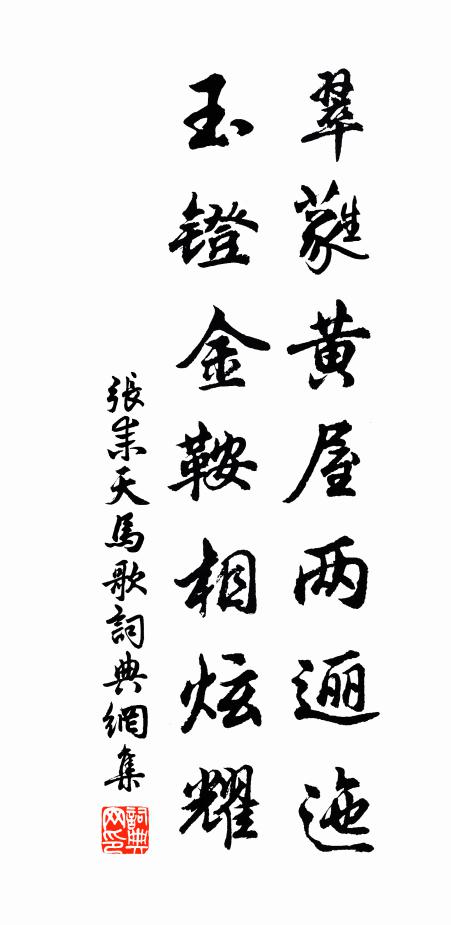 翠蕤黄屋两逦迤
玉鐙金鞍相炫耀
張耒天馬歌詞典網集
詞典网印